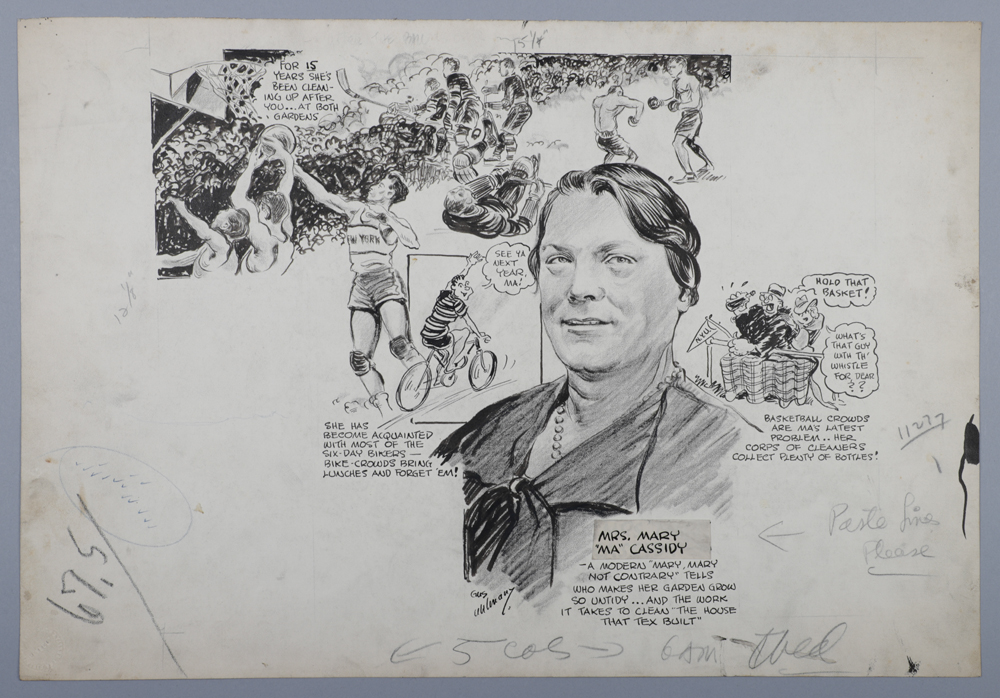 15 1/4"
FOR 15
YEARS SHE'S
BEEN CLEAN-
ING UP AFTER
YOU...AT BOTH
GARDENS
W YORK
SEE YA
NEXT
YEAR,
MA!
HOLD THAT
BASKET!
WHAT'S
THAT GUY
WITH TH'
WHISTLE
FOR DEAR
??
N.Y.U.
SHE HAS
BECOME ACQUAINTED
WITH MOST OF THE
SIX-DAY BIKERS —
BIKE-CROWDS BRING
LUNCHES AND FORGET 'EM!
BASKETBALL CROWDS
ARE MA'S LATEST
PROBLEM.. HER
CORPS OF CLEANERS
COLLECT PLENTY OF BOTTLES!
11277
1
MRS. MARY
"MA" CASSIDY
-A MODERN "MARY, MARY
NOT CONTRARY" TELLS
WHO MAKES HER GARDEN GROW
SO UNTIDY...AND THE WORK
IT TAKES TO CLEAN "THE HOUSE
THAT TEX BUILT"
Gus
Uhlmann
Paste lines
Please
67.5
12 1/8
5 cols
6am - Wed